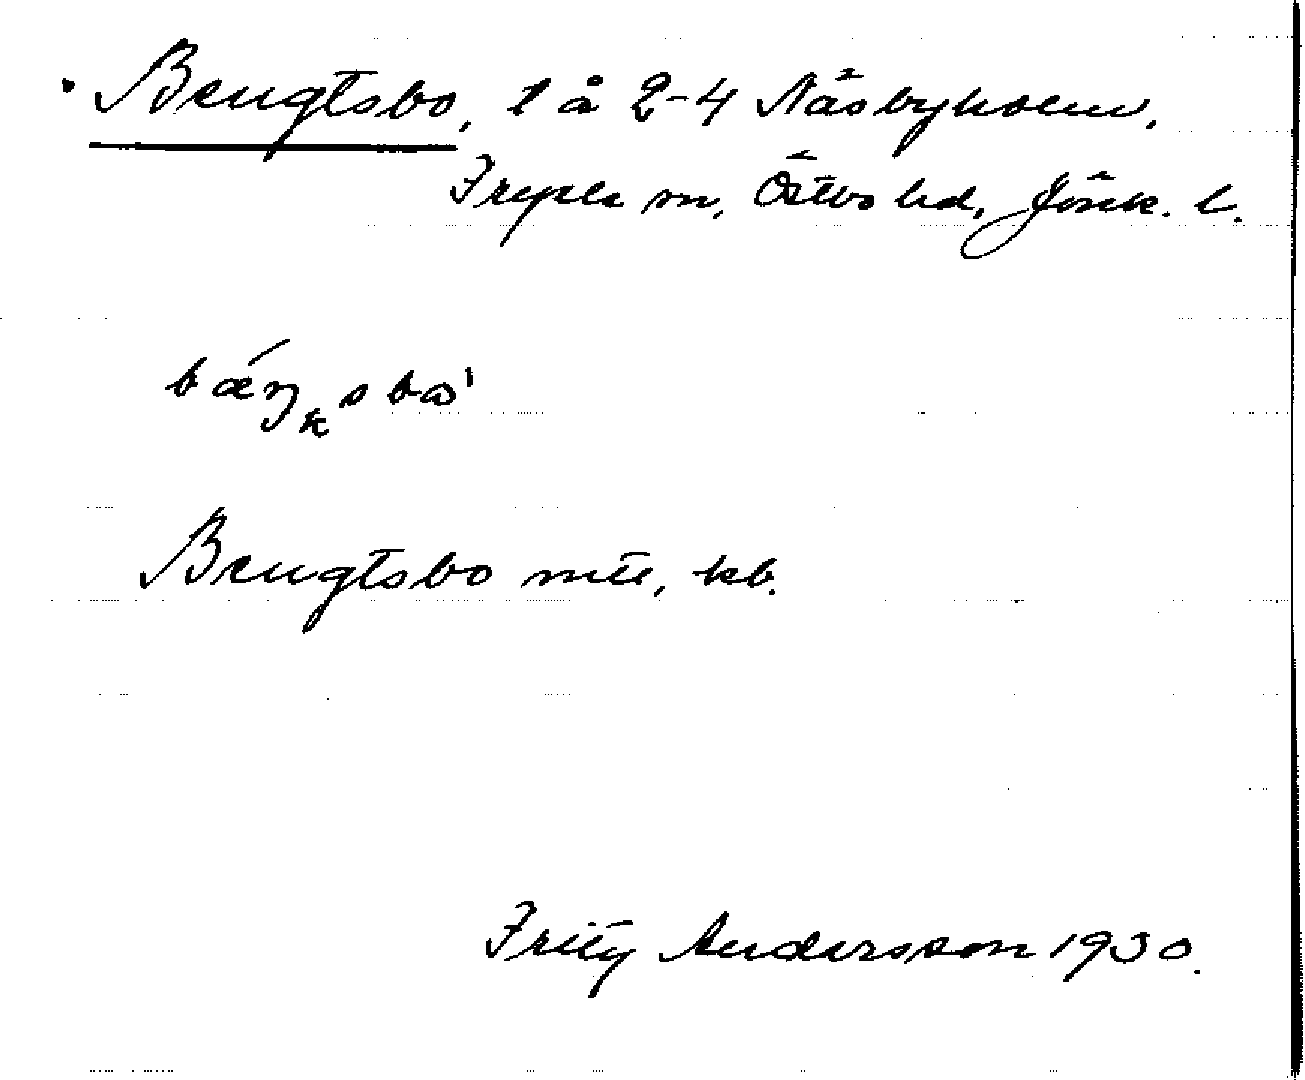 Bengtsbo, l å 2-4 Näsbyholm,
Fryele sn, Östbo hd, Jönk. l.
bǽŋksbω'
Bengtsbo mtl, kb.
Fritz Andersson 1930.